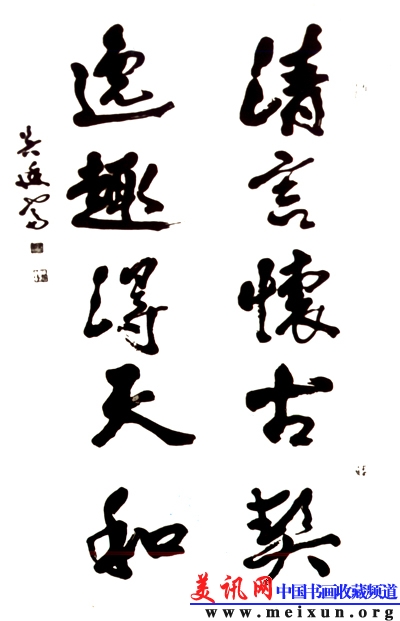 清言懷古契
逸趣得天和
美讯网 中国书画收藏频道
www.meixun.org